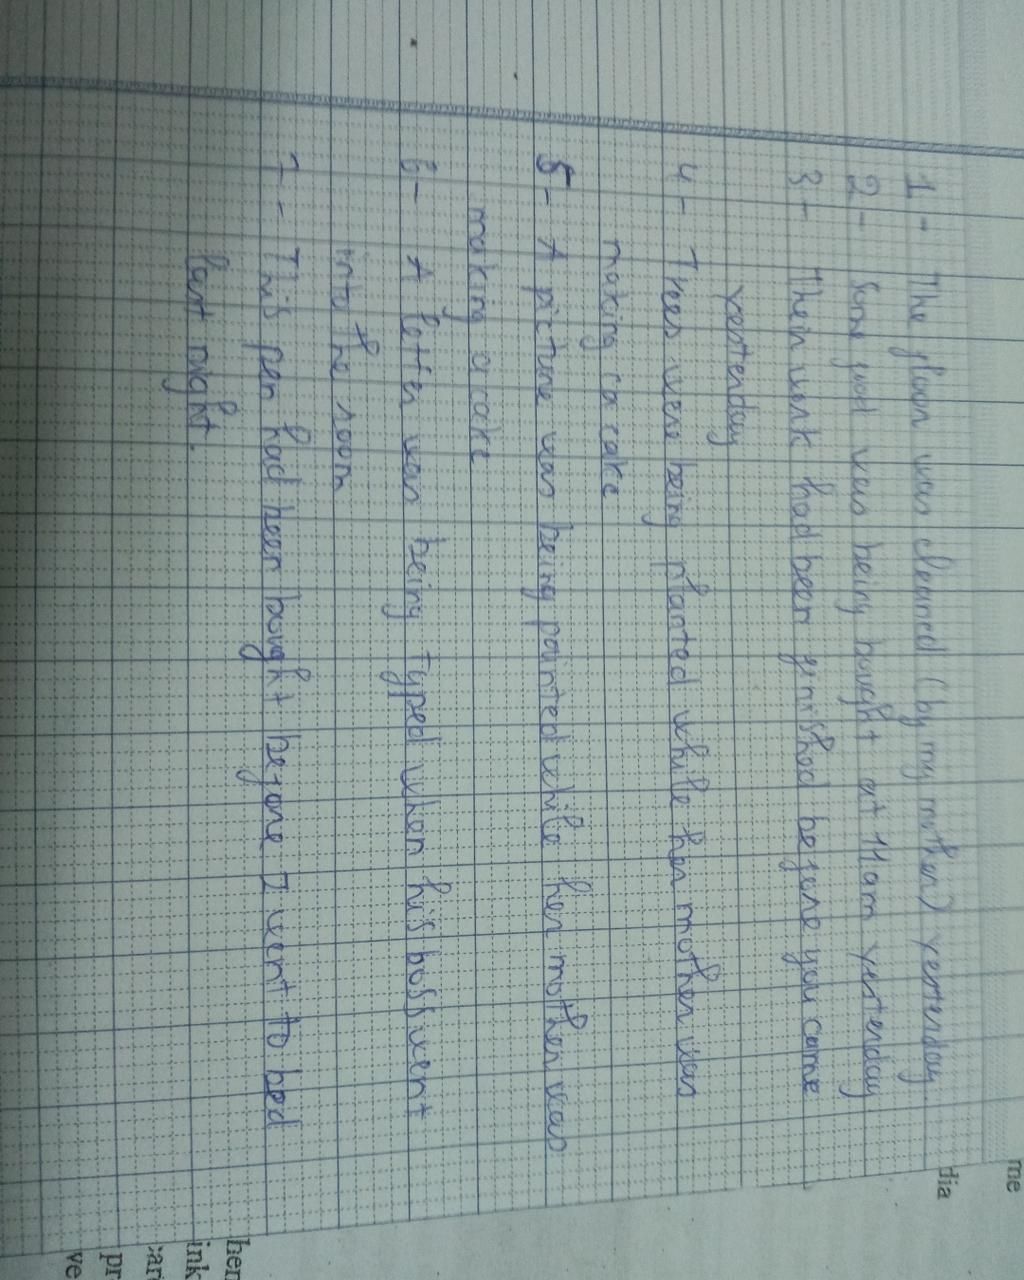 1- The floor was cleaned (by my mother) yesterday.
2- Some food was being bought at 11am yesterday
3- Their work had been finished before you came
yesterday
4- Trees were being planted while her mother was
making a cake
5- A picture was being painted while her mother was
making a cake
6- A letter was being typed when his boss went
into the room
7- This pen had been bought before I went to bed
last night.
me
dia
hen
ink
car
pr
ve